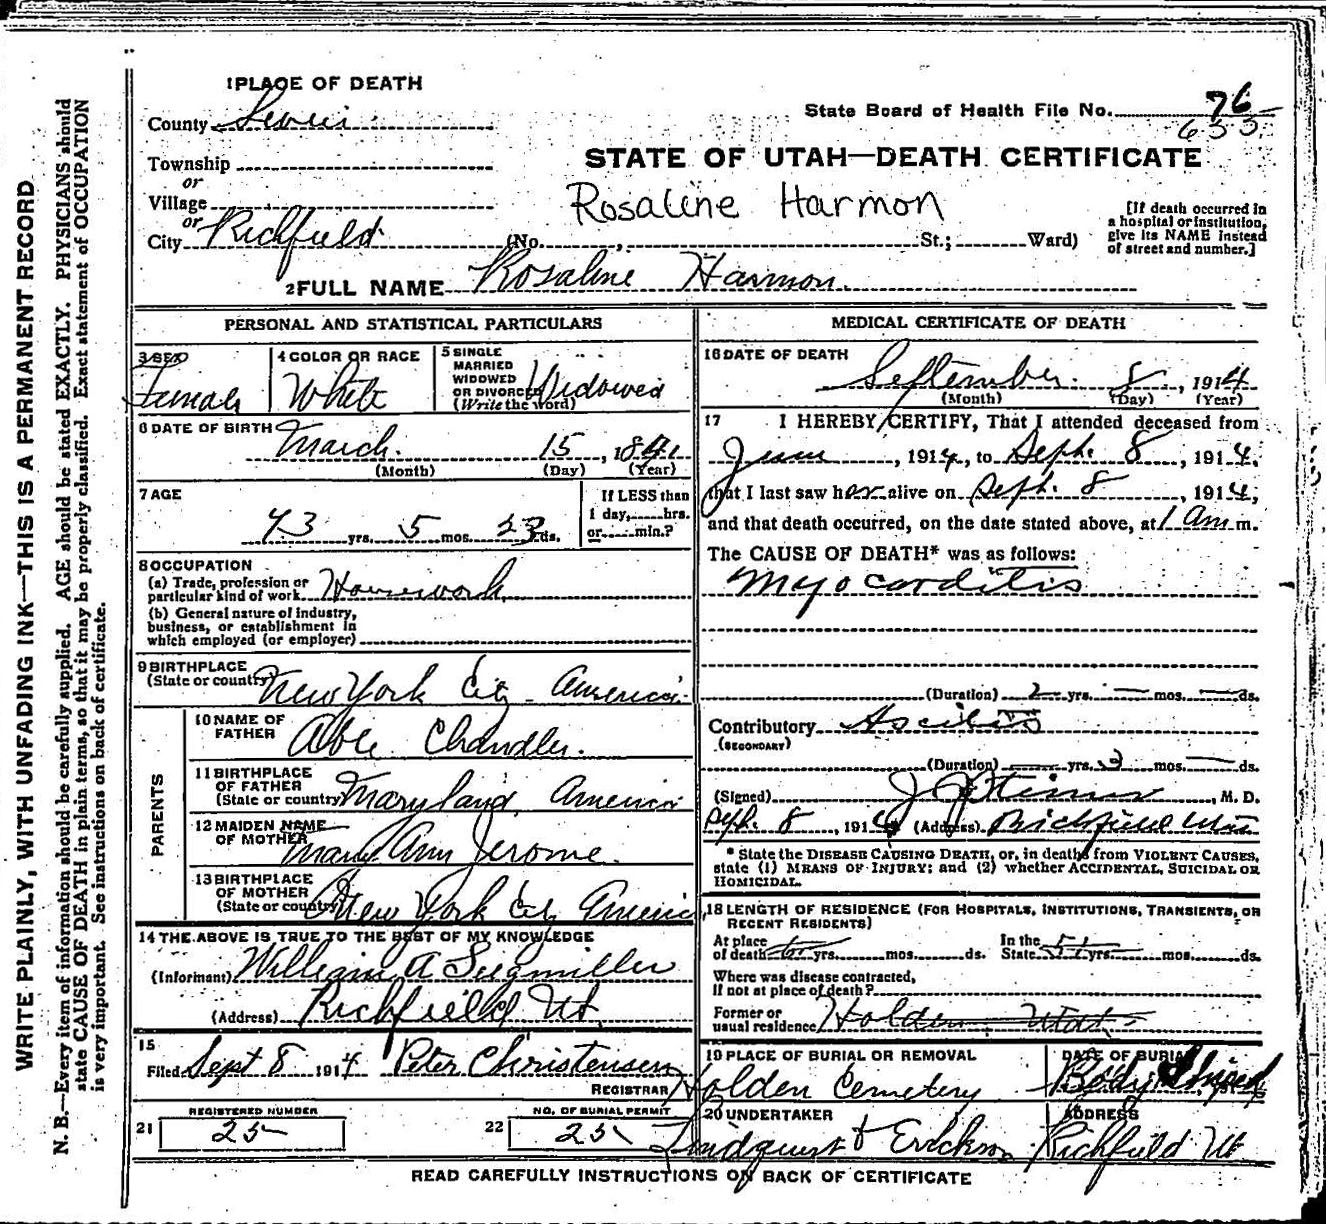 WRITE PLAINLY, WITH UNFADING INK—THIS IS A PERMANENT RECORD
N. B.—Every item of information should be carefully supplied. AGE should be stated EXACTLY. PHYSICIANS should
state CAUSE OF DEATH in plain terms, so that it may be properly classified. Exact statement of OCCUPATION
is very important. See instructions on back of certificate.
1 PLACE OF DEATH
County Sevier
Township
or
Village
or
City Richfield
State Board of Health File No. 76
653
STATE OF UTAH—DEATH CERTIFICATE
Rosaline Harmon
(No. , St.; Ward)
[If death occurred in
a hospital or institution,
give its NAME instead
of street and number.]
2 FULL NAME Rosaline Harmon
PERSONAL AND STATISTICAL PARTICULARS
3 SEX
Female
4 COLOR OR RACE
White
5 SINGLE
MARRIED
WIDOWED
OR DIVORCED
(Write the word)
Widowed
6 DATE OF BIRTH
March 15, 1841
(Month) (Day) (Year)
7 AGE
73 yrs. 5 mos. 23 ds.
If LESS than
1 day, hrs.
or min.?
8 OCCUPATION
(a) Trade, profession or
particular kind of work Housework
(b) General nature of industry,
business, or establishment in
which employed (or employer)
9 BIRTHPLACE
(State or country) New York City America
PARENTS
10 NAME OF
FATHER
Able Chandler
11 BIRTHPLACE
OF FATHER
(State or country) Maryland America
12 MAIDEN NAME
OF MOTHER
Mary Ann Jerome
13 BIRTHPLACE
OF MOTHER
(State or country) New York City America
14 THE ABOVE IS TRUE TO THE BEST OF MY KNOWLEDGE
(Informant) William A Seegmiller
(Address) Richfield Ut
15
Filed Sept 8 1914 Peter Christensen
REGISTRAR
REGISTERED NUMBER
21 25
NO. OF BURIAL PERMIT
22 25
MEDICAL CERTIFICATE OF DEATH
16 DATE OF DEATH
September 8, 1914
(Month) (Day) (Year)
17 I HEREBY CERTIFY, That I attended deceased from
June, 1914, to Sept. 8, 1914,
that I last saw her alive on Sept. 8, 1914,
and that death occurred, on the date stated above, at 1 am m.
The CAUSE OF DEATH* was as follows:
Myocarditis
(Duration) 2 yrs. — mos. — ds.
Contributory Ascitis
(SECONDARY)
(Duration) — yrs. 3 mos. — ds.
(Signed) , M. D.
Sept. 8, 1914 (Address) Richfield Utah
* State the DISEASE CAUSING DEATH, or, in deaths from VIOLENT CAUSES,
state (1) MEANS OF INJURY; and (2) whether ACCIDENTAL, SUICIDAL OR
HOMICIDAL.
18 LENGTH OF RESIDENCE (FOR HOSPITALS, INSTITUTIONS, TRANSIENTS, OR
RECENT RESIDENTS)
At place In the
of death yrs. mos. ds. State yrs. mos. ds.
Where was disease contracted,
If not at place of death?
Former or
usual residence Holden Utah
19 PLACE OF BURIAL OR REMOVAL
Holden Cemetery
DATE OF BURIAL
Body Shiped
20 UNDERTAKER
Lindquist & Erickson
ADDRESS
Richfield Ut
READ CAREFULLY INSTRUCTIONS ON BACK OF CERTIFICATE